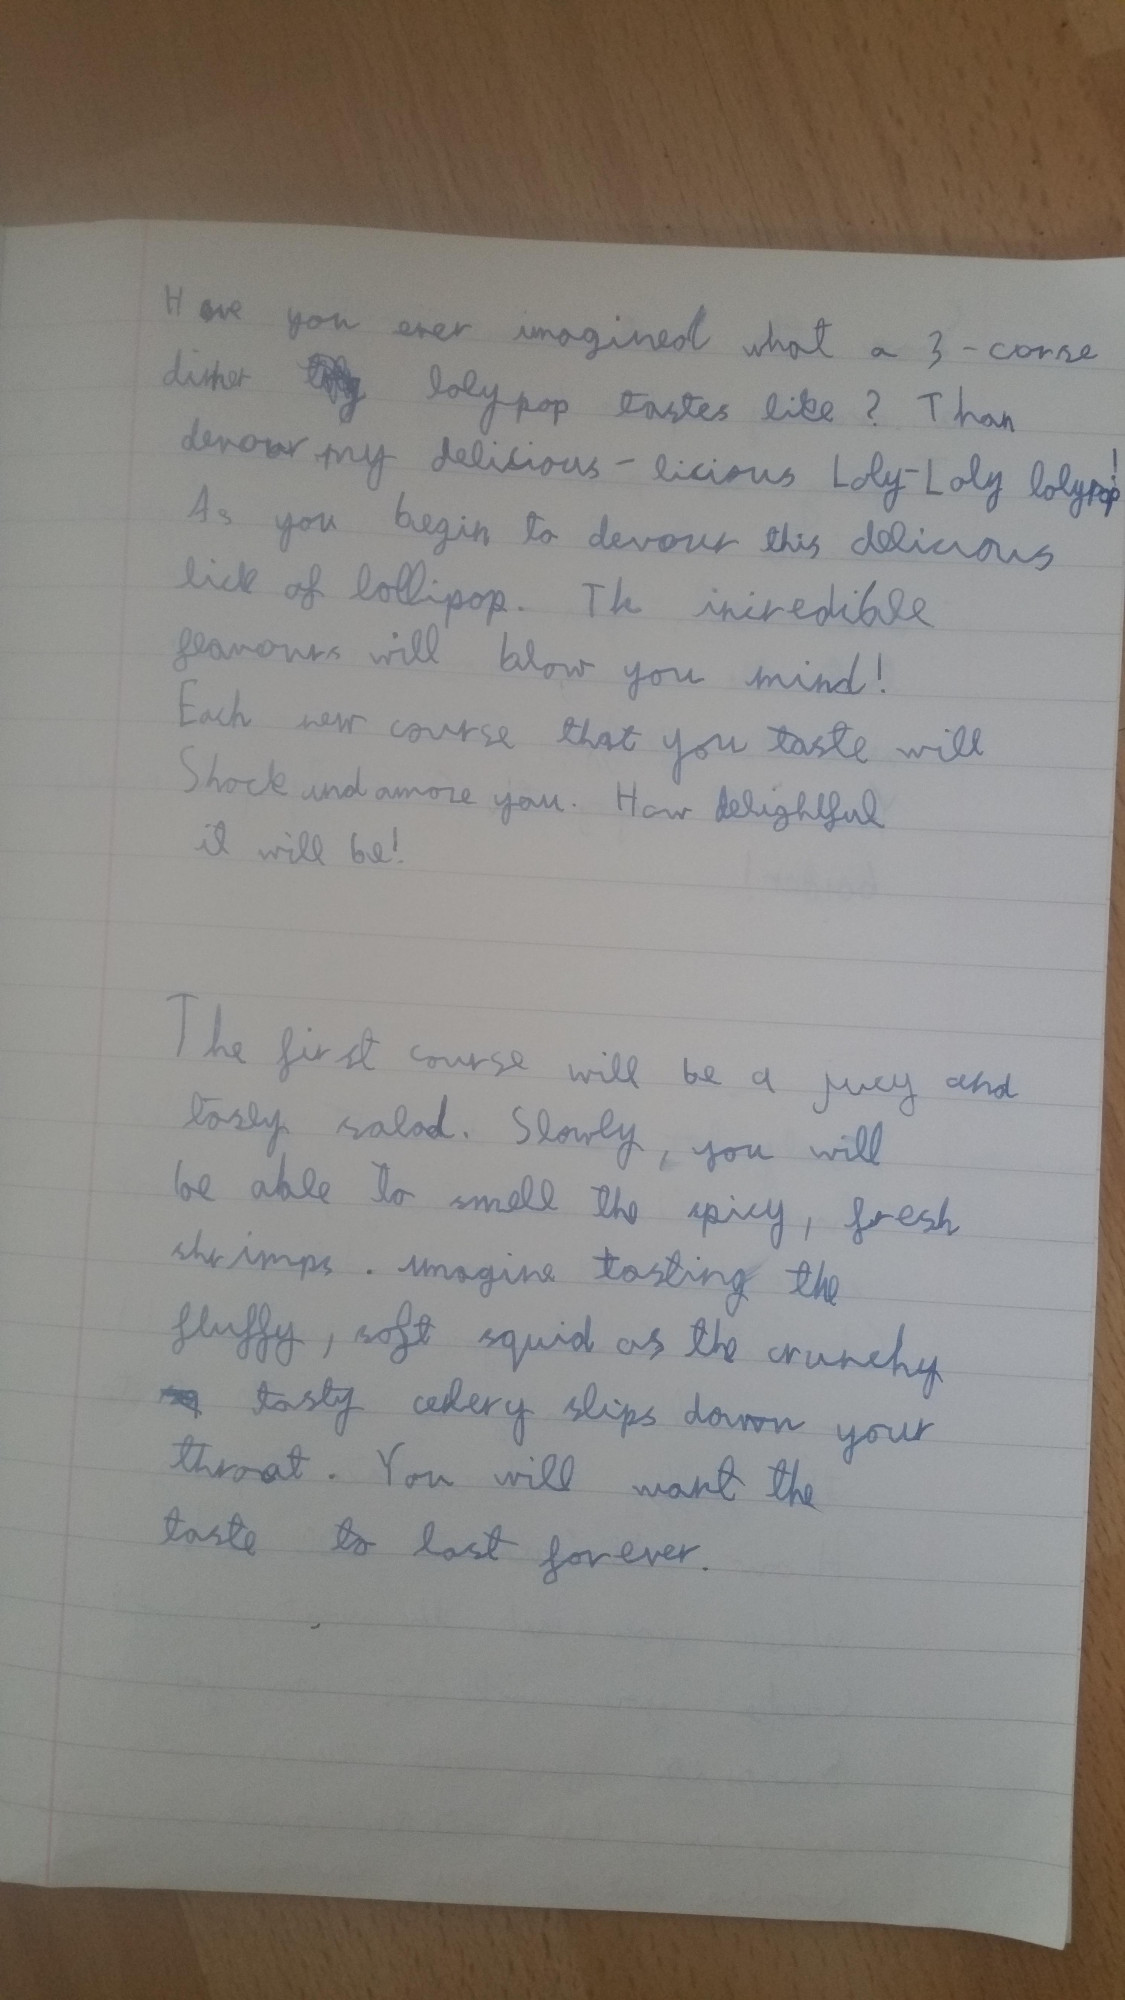 Have you ever imagined what a 3-corse
dinner lolypop tastes like? Than
devour my delicious-licious Loly-Loly lolypop!
As you begin to devour this delicious
lick of lollipop. The incredible
flavours will blow you mind!
Each new course that you taste will
Shock and amaze you. How delightful
it will be!
The first course will be a jucy and
tasty salad. Slowly, you will
be able to smell the spicy, fresh
shrimps. imagine tasting the
fluffy, soft squid as the crunchy
tasty celery slips down your
throat. You will want the
taste to last forever.